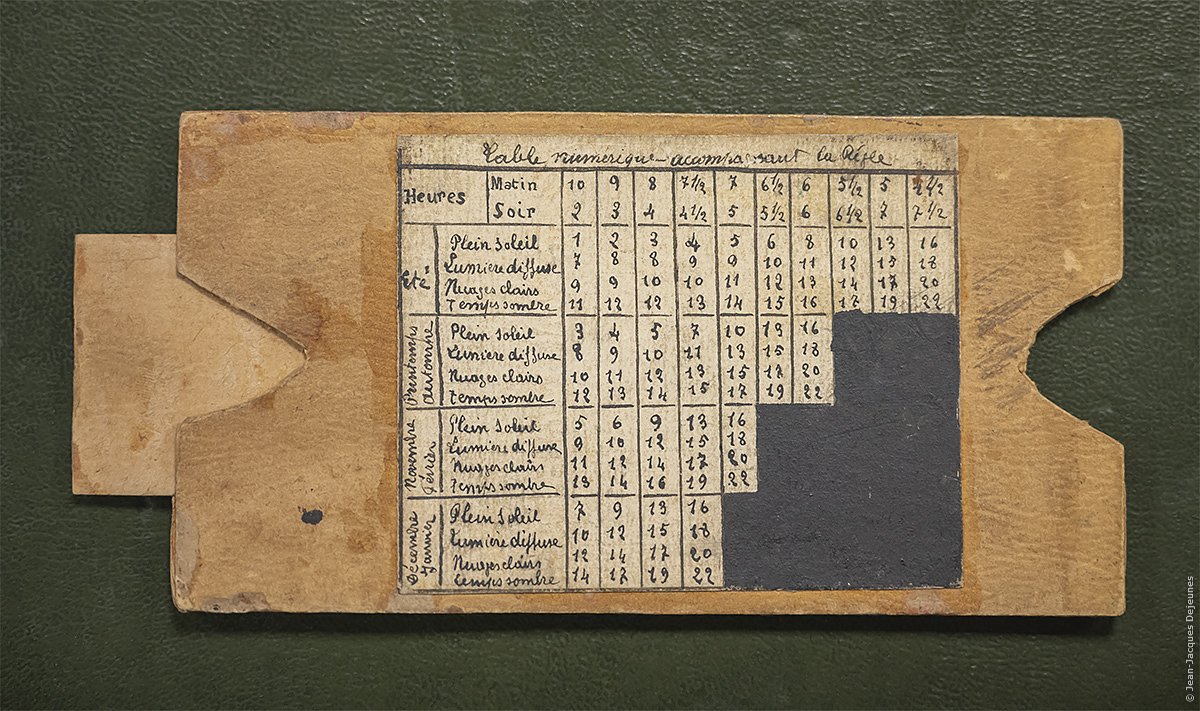 Table numérique accompagnant la Règle
Heures Matin 10 9 8 7 1/2 7 6 1/2 6 5 1/2 5 4 1/2
Soir 2 3 4 4 1/2 5 5 1/2 6 6 1/2 7 7 1/2
Eté Plein Soleil 1 2 3 4 5 6 8 10 13 16
Lumière diffuse 7 8 8 9 9 10 11 12 15 18
Nuages clairs 9 9 10 10 11 12 13 14 17 20
Temps sombre 11 12 12 13 14 15 16 17 19 22
Printemps Automne Plein Soleil 3 4 5 7 10 13 16
Lumière diffuse 8 9 10 11 13 15 18
Nuages clairs 10 11 12 13 15 17 20
Temps sombre 12 13 14 15 17 19 22
Novembre Février Plein Soleil 5 6 9 13 16
Lumière diffuse 9 10 12 15 18
Nuages clairs 11 12 14 17 20
Temps sombre 13 14 16 19 22
Décembre Janvier Plein Soleil 7 9 13 16
Lumière diffuse 10 12 15 18
Nuages clairs 12 14 17 20
Temps sombre 14 17 19 22
© Jean-Jacques Dejeunes